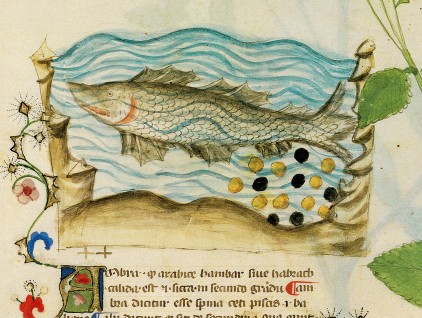 Ambra · ꝙ arabice hambar siue habrach
calida · est ⁊ sicca · in secundo gradu ¶ Am
bra dicitur esse spma ceti piscis · i · ba
dicunt